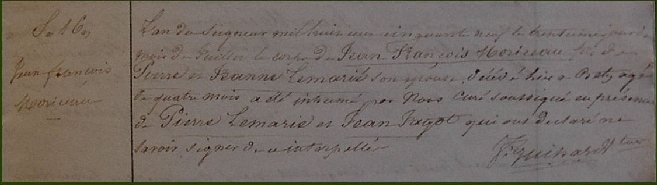 S. 169
Jean François
Moriceau
L'an du Seigneur mil huit cent cinquante neuf le trentième jour du
mois de Juillet le corps de Jean François Moriceau fils de
Pierre et Jeanne Lemarié son épouse, décédé hier à âgé
de quatre mois a été inhumé par Nous Curé soussigné en présence
de Pierre Lemarié et Jean Fagot qui ont déclaré ne
savoir signer de ce interpellés
J. Guihard